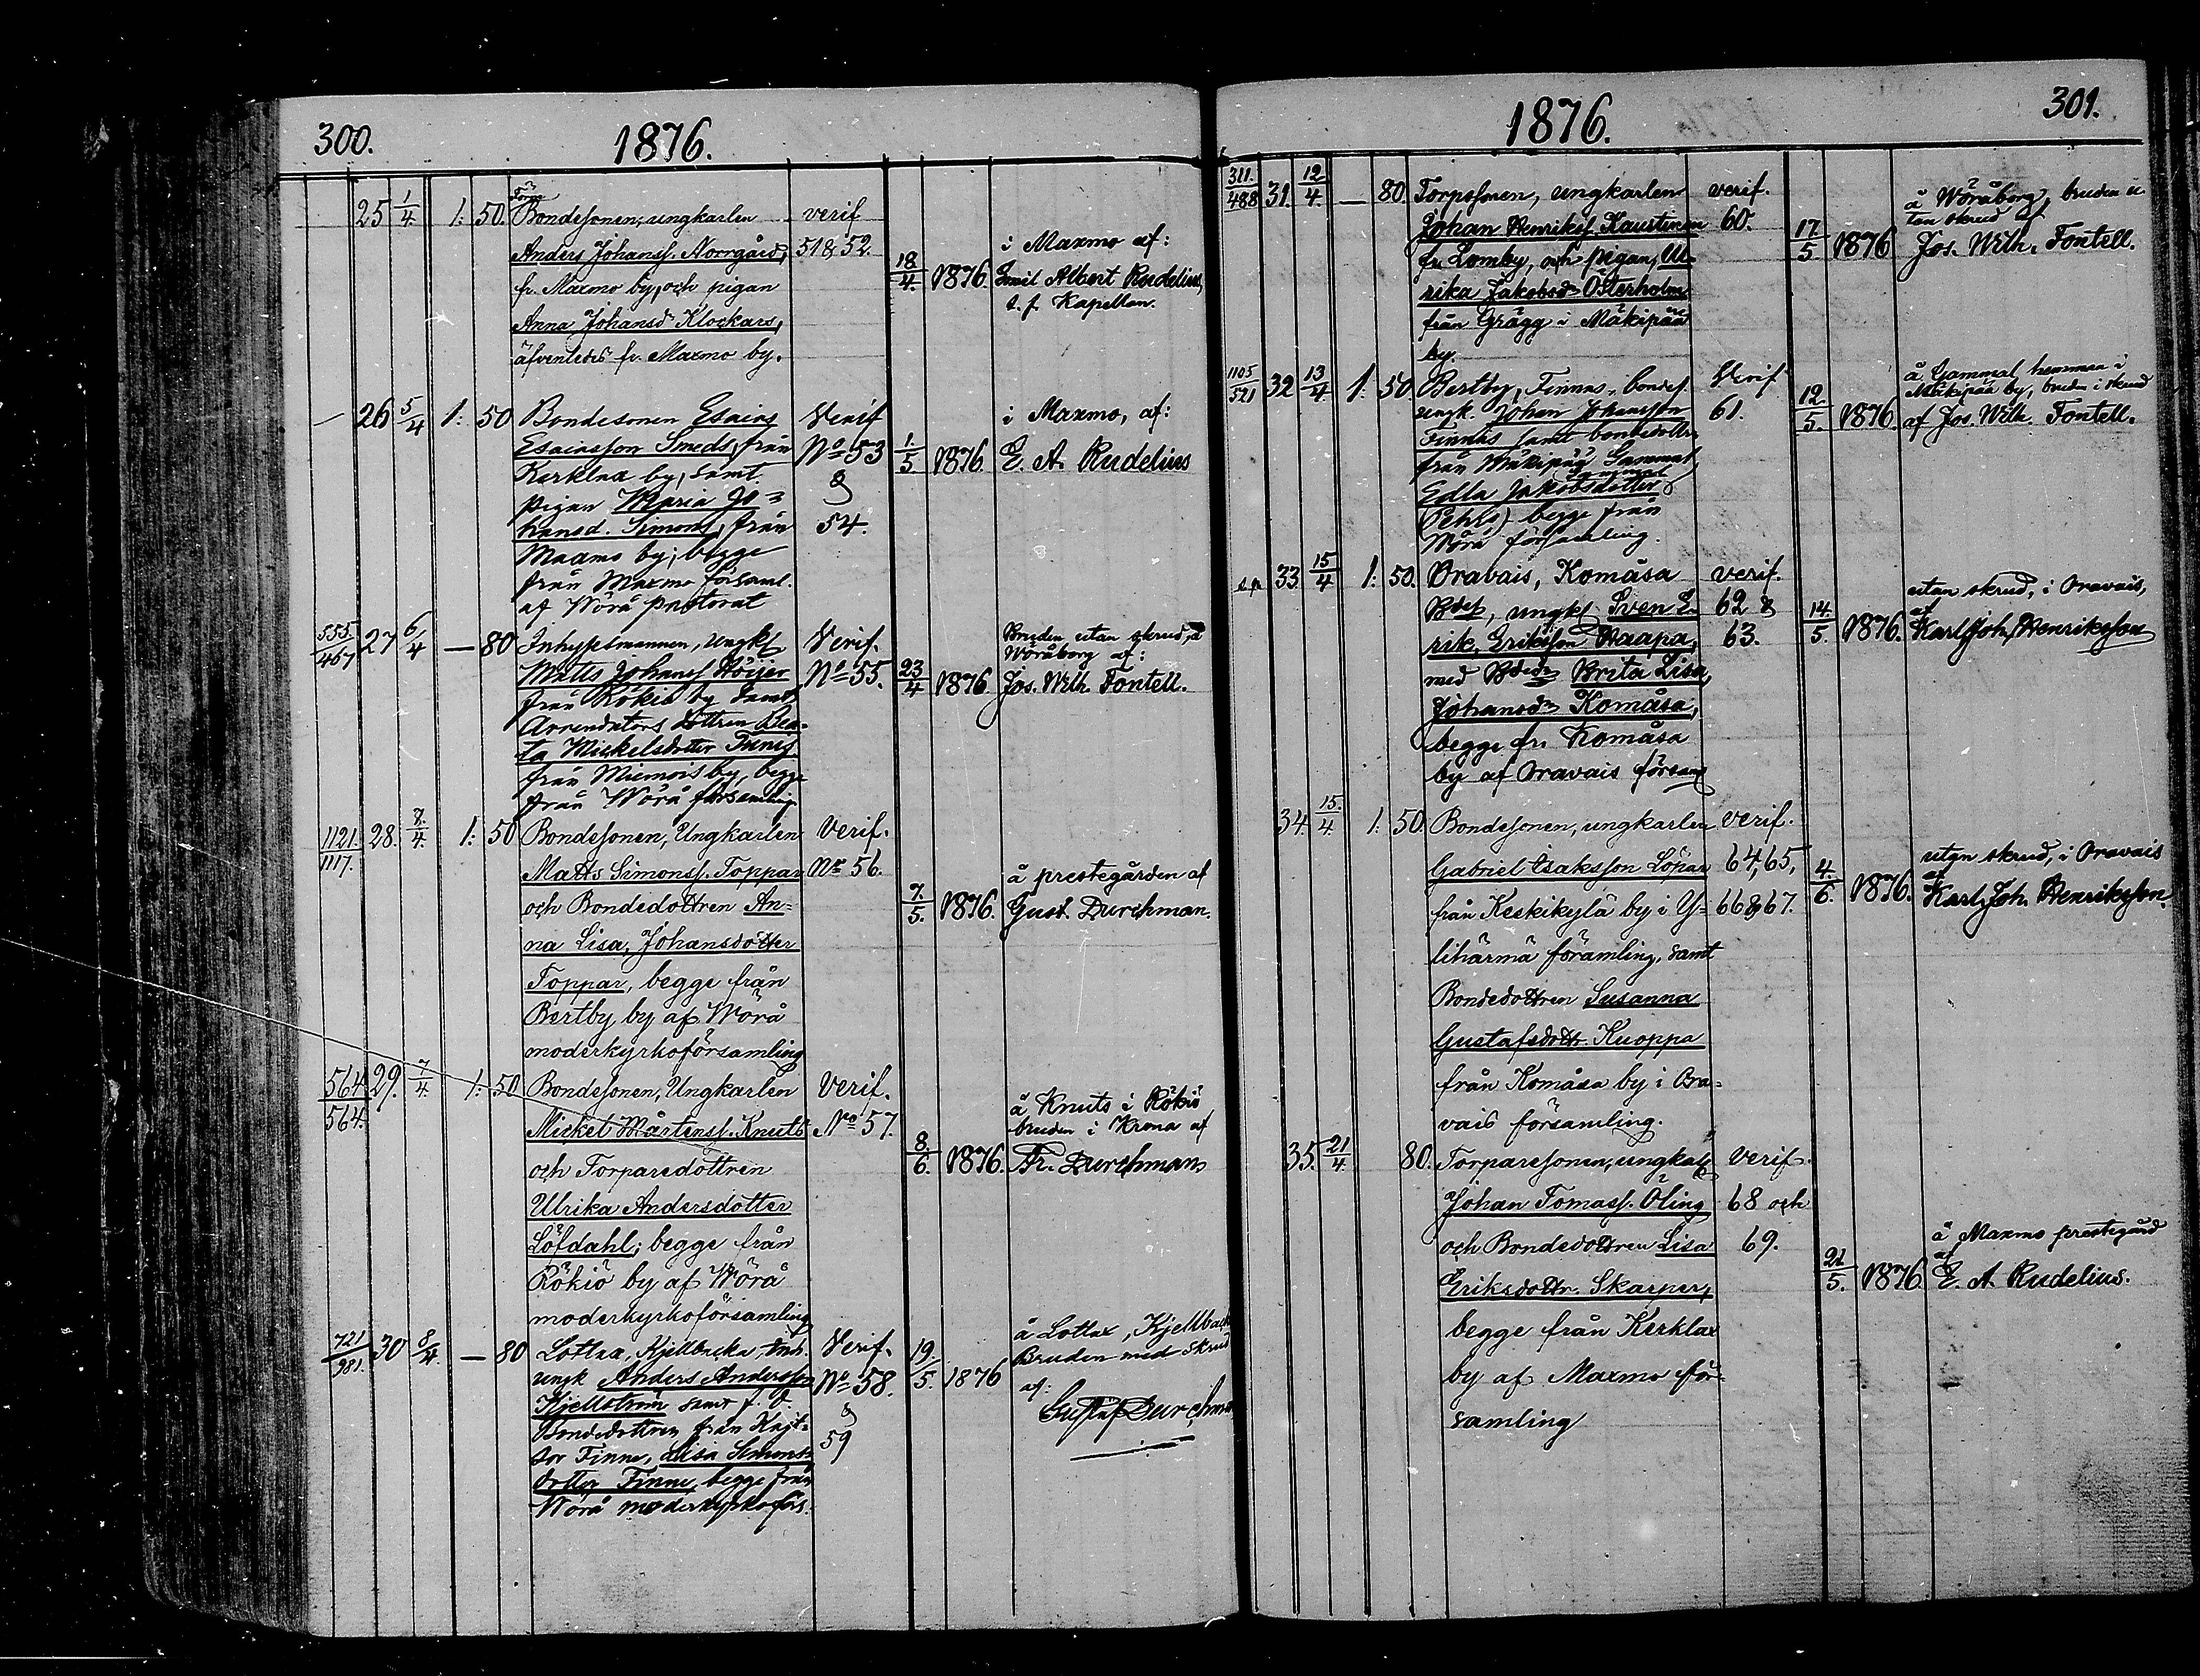 300.
1876.
25 1/4. 1: 50. Bondesonen, ungkarlen verif
Anders Johanss. Norrgård, 51 & 52.
fr. Maxmo by, och pigan
Anna Johansdr Klockars,
äfvenledes fr. Maxmo by.
18/4. 1876.
i Maxmo af:
Emil Albert Rudelius,
t. f. Kapellan.
26 5/4 1: 50 Bondesonen Esaias Verif
Esaiasson Smeds, från No 53
Kerklax by, samt &
pigan Maria Jo= 54.
hansd. Simons, från
Maxmo by; begge
från Maxmo församl.
af Wörå pastorat
1/5 1876.
i Maxmo, af:
E. A. Rudelius
555/467 27 6/4 — 80 Inhysesmannen, ungk. Verif.
Matts Johanss Höijer No 55.
från Rökiö by samt
Arrendators dottren Bea-
ta Mickelsdotter Finne
från Miemois by, begge
från Wörå församling
23/4 1876
Bruden utan skrud, å
Wöråborg af:
Jos. Wilh. Fontell.
1121./1117. 28. 8./4. 1: 50 Bondesonen, Ungkarlen Verif.
Matts Simonss. Toppar No 56.
och Bondedottren An=
na Lisa, Johansdotter
Toppar, begge från
Bertby by af Wörå
moderkyrkoförsamling
7./5. 1876.
å prestegården af
Gust. Durchman.
564/564. 29. 7/4. 1: 50 Bondesonen, Ungkarlen Verif.
Mickel Mårtenss. Knuts No 57.
och Torparedottren
Ulrika Andersdotter
Löfdahl; begge från
Rökiö by af Wörå
moderkyrkoförsamling
8/6. 1876.
å Knuts i Rökiö
bruden i Krona af
Fr. Durchman
721/981. 30 8/4. — 80 Lottax, Kjellbacka, Verif.
ungk Anders Andersson No 58.
Kjellström samt f. d. &
Bondedottren från Kajt- 59
sor Finne, Lisa Simons
dotter Finne, begge från
Wörå moderkyrkoförs.
19./5. 1876
å Lottax, Kjellback
Bruden med skrud
af:
Gustaf Durchman
1876.
301.
311./488 31. 12/4. — 80. Torpesonen, ungkarlen verif.
Johan Henrikss. Kaustinen 60.
fr. Lomby, och pigan, Ul-
rika Jakobsdr Österholm
från Grägg i Mäkipää
by.
17/5 1876
å Wöråborg, bruden u-
tan skrud af
Jos. Wilh. Fontell.
1105/521 32 13/4 1: 50 Bertby, Finnas, bondes. Verif
ungk. Johan Johansson 61.
Finnäs samt bondedottr.
från Mäkipää Gammal,
Edla Jakobsdotter
(Pehrs) begge från
Wörå församling.
12./5. 1876.
å Gammal hemman i
Mäkipää by, bruden i skrud
af Jos. Wilh. Fontell.
33 15/4 1: 50. Oravais, Komåsa verif.
Bdes, ungk. Sven E- 62 &
rik, Eriksson Haapa, 63.
med Bdedr Brita Lisa,
Johansdr Komåsa,
begge fr. Komåsa
by af Oravais försam
14./5. 1876.
utan skrud, i Oravais,
af
Karl Joh. Henriksson
34 15./4. 1: 50. Bondesonen, ungkarlen verif.
Gabriel Isaksson Löpar 64, 65,
från Keskikylä by i Y= 66 & 67.
lihärmä föramling, samt
Bondedottren Susanna
Gustafsdottr. Kuoppa
från Komåsa by i Ora=
vais församling.
4./6. 1876.
utan skrud, i Oravais
af
Karl Joh. Henriksson.
35. 21/4 80. Torparesonen, ungkarl verif.
Johan Tomass. Öling 68 och
och Bondedottren Lisa 69.
Eriksdottr. Skarper,
begge från Kerklax
by af Maxmo för-
samling
21/5. 1876.
å Maxmo prestegård
af
E. A. Rudelius.